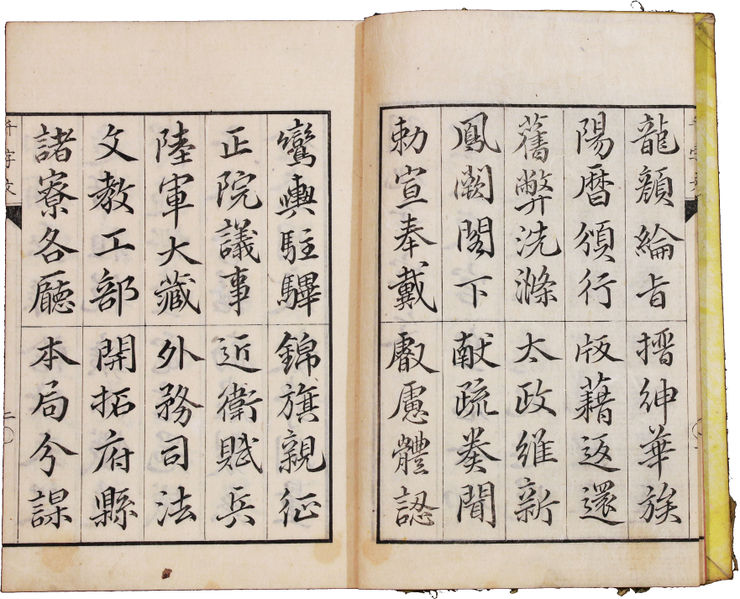 龍顔綸旨 搢紳華族
陽暦頒行 版藉返還
舊弊洗滌 太政維新
鳳闕閣下 献疏奏聞
勅宣奉戴 叡慮體認
鸞輿駐驆 錦旗親征
正院議事 近衛賦兵
陸軍大藏 外務司法
文教工部 開拓府縣
諸寮各廳 本局分課